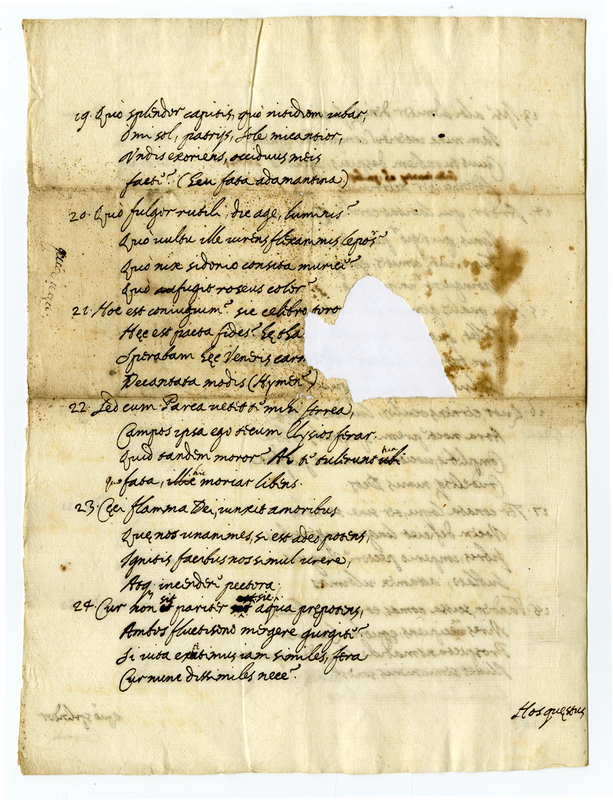 19. Quo splendor capitis, quo nitidum iubar,
O mi sol, patrijs, sole micantior,
Vndis exoriens, occiduus meis
factꝰ? (heu fata adamantina)
20. Quo fulgor rutili, dic age, luminis?
Quo vultu ille virens flexanimis lepos?
Quo nix sidonio consita murice?
Quo fugit roseus color?
21. Hoc est coniugium? sic celibro toro
Hęc est pacta fides?
Sperabam hęc Veneris carm
Decantata modis (Hymen?)
22. Sed cum Parca vetet te mihi ferrea,
Campos ipsa ego tecum Elysios ferar.
Quid tandem moror? te tulerunt ubi
Quo fata, hic moriar libens.
23. Ceu flamma Dei, iunxit amoribus
Que nos unanimes, si est adeo potens,
Ignitis facibus nos simul urere,
Atq; incendere pectora;
24. Cur non sit pariter sic aqua prepotens,
Ambos fluctisono mergere gurgite?
Si vita extitimus iam similes, fera
Cur nunc dissimiles nece?
Hos questus